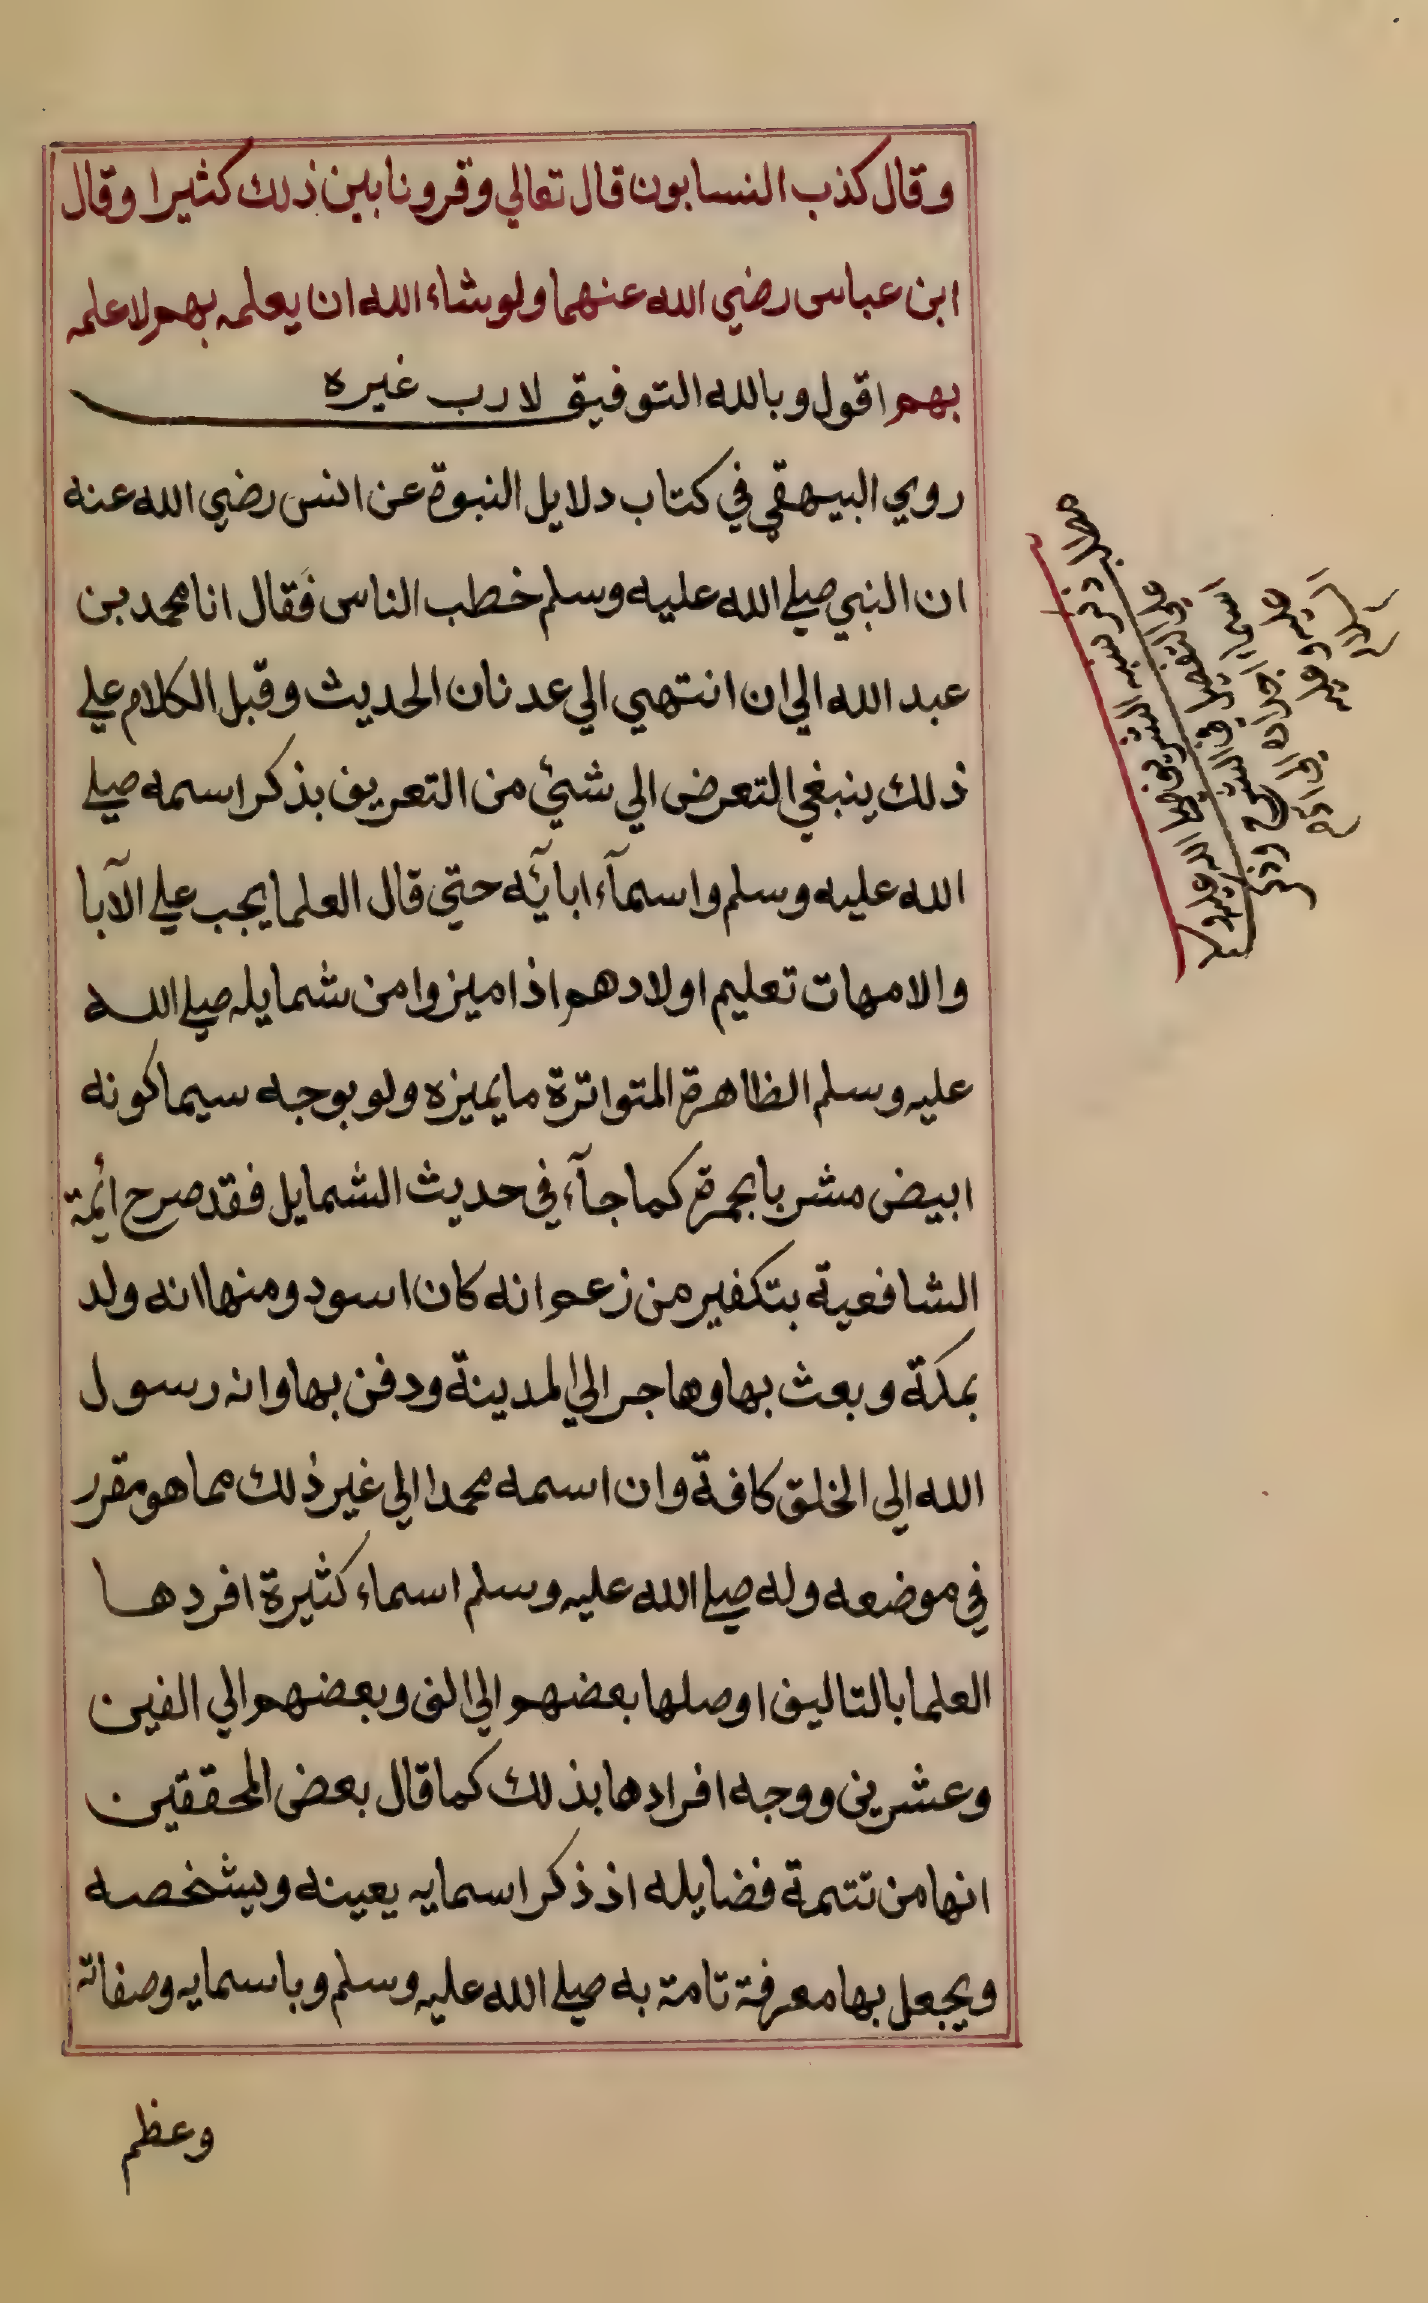 وقال كذب النسابون قال تعالي وقرونا بين ذلك كثيرا وقال
ابن عباس رضي الله عنهما ولو شاء الله ان يعلمه بهم لاعلمه
بهم اقول وبالله التوفيق لا رب غيره
روي البيهقي في كتاب دلايل النبوة عن انس رضي الله عنه
ان النبي صلي الله عليه وسلم خطب الناس فقال انا محمد بن
عبد الله الي ان انتهي الي عدنان الحديث وقبل الكلام علي
ذلك ينبغي التعرض الي شيئ من التعريف بذكر اسمه صلي
الله عليه وسلم واسمآء ابآئه حتي قال العلما يجب علي الآبا
والامهات تعليم اولادهم اذا ميزوا من شمايله صلي الله
عليه وسلم الظاهرة المتواترة ما يميزه ولو بوجه سيما كونه
ابيض مشربا بحمرة كما جآء في حديث الشمايل فقد صرح ائمة
الشافعية بتكفير من زعم انه كان اسود ومنها انه ولد
بمكة وبعث بها وهاجر الي المدينة ودفن بها وانه رسول
الله الي الخلق كافة وان اسمه محمدا الي غير ذلك مما هو مقرر
في موضعه وله صلي الله عليه وسلم اسماء كثيرة افردها
العلما بالتاليف اوصلها بعضهم الي الف وبعضهم الي الفين
وعشرين ووجه افرادها بذلك كما قال بعض المحققين
انها من تتمة فضايله اذ ذكر اسمايه يعينه ويشخصه
ويجعل بها معرفة تامة به صلي الله عليه وسلم وباسمايه وصفاته
وعظم
ذكر نسبه الشريف صلى الله عليه وسلم
على التفصيل في الشرح وذكر
اسماء اجداده الى ادم
عليه وعليه
السلام